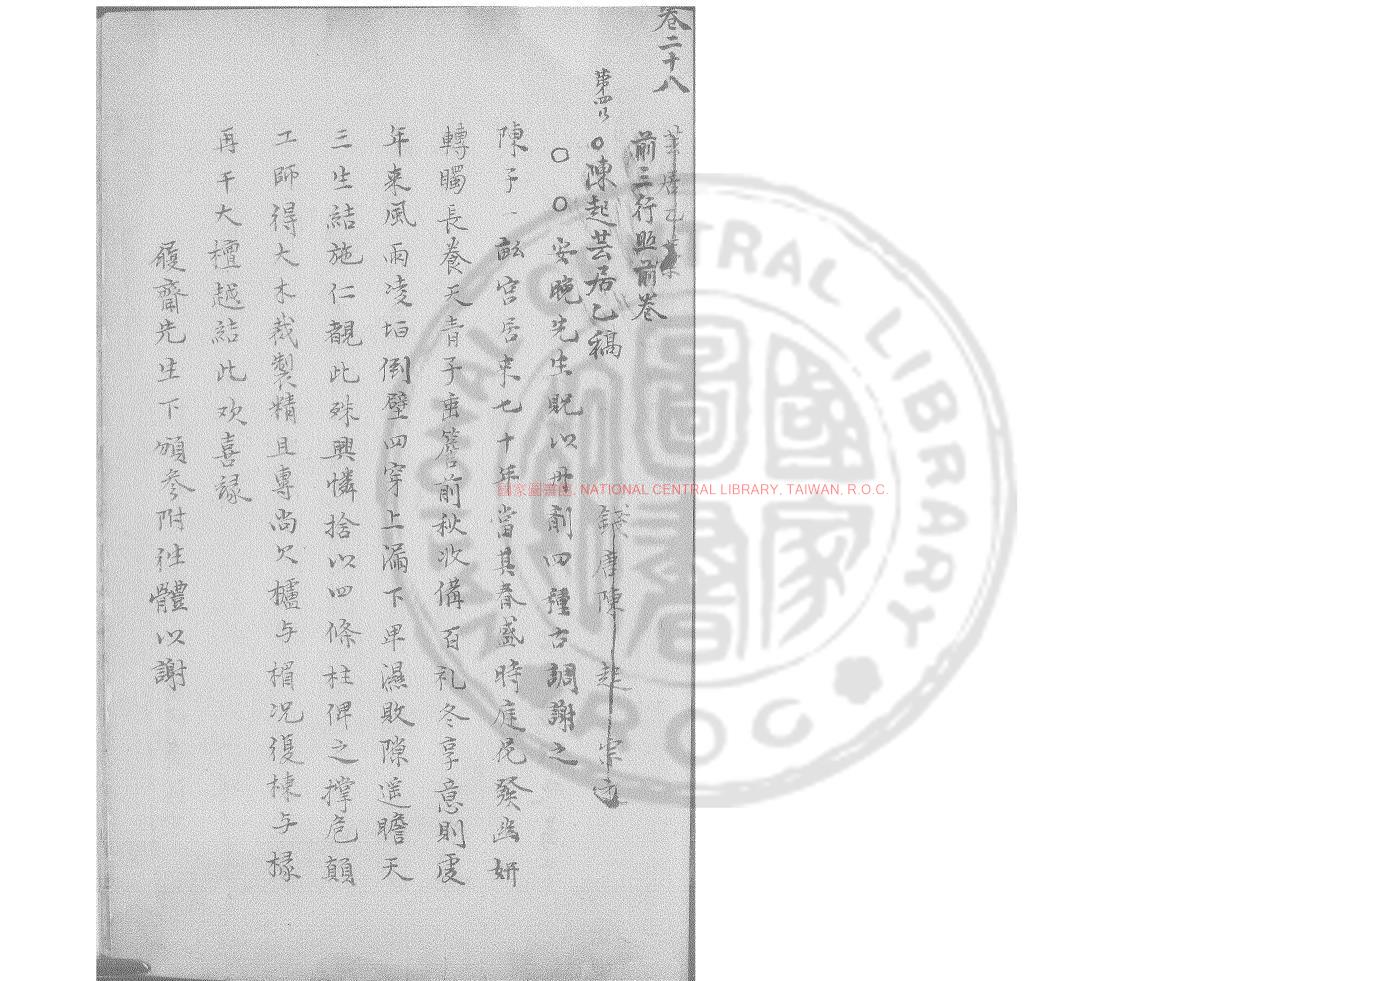 卷二十八
芸居乙稾
前三行照前卷
第四行
○陳起芸居乙稿
錢唐陳起宗之
○○安晚先生貺以丹劑四種古調謝之
陳子一畝宮居來七十年當其春盛時庭花發幽妍
轉矚長養天青子垂簷前秋收備百礼冬享意則虔
年來風雨凌垣倒壁四穿上漏下卑濕敗隙遥瞻天
三生結施仁覩此殊興憐捨以四條柱俾之撑危顛
工師得大木裁製精且專尚欠櫨与楣况復棟与椽
再干大檀越結此欢喜緣
履齋先生下頒參附往體以謝
國家圖書館, NATIONAL CENTRAL LIBRARY, TAIWAN, R.O.C.
NATIONAL CENTRAL LIBRARY
ROC